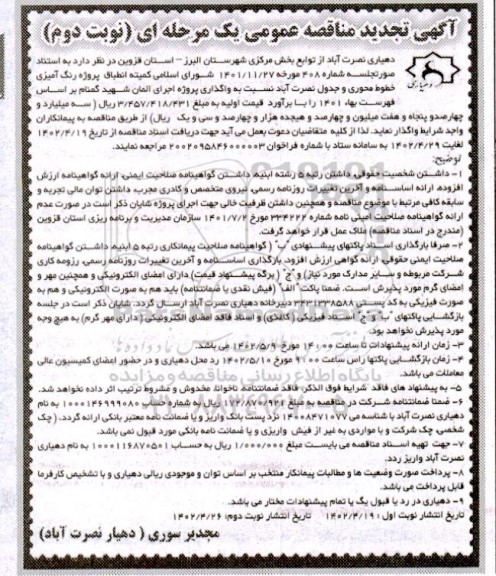 آگهی تجدید مناقصه عمومی یک مرحله ای (نوبت دوم)
دهیاری نصرت آباد از توابع بخش مرکزی شهرستان البرز – استان قزوین در نظر دارد به استناد
صورتجلسه شماره ۴۰۸ مورخه ۱۴۰۱/۱۱/۲۷ شورای اسلامی کمیته انطباق پروژه رنگ آمیزی
خطوط محوری و جدول نصرت آباد نسبت به واگذاری پروژه اجرای المان شهید گمنام بر اساس
فهرست بهاء ۱۴۰۱ را با برآورد قیمت اولیه به مبلغ ۳/۴۵۷/۴۱۸/۴۳۱ ریال ( سه میلیارد و
چهارصدو پنجاه و هفت میلیون و چهارصد و هیجده هزار و چهارصد و سی و یک ریال) از طریق مناقصه به پیمانکاران
واجد شرایط واگذار نماید. لذا از کلیه متقاضیان دعوت بعمل می آید جهت دریافت اسناد مناقصه از تاریخ ۱۴۰۲/۴/۱۹
لغایت ۱۴۰۲/۴/۲۹ به سامانه ستاد با شماره فراخوان ۲۰۰۲۰۹۵۸۴۶۰۰۰۰۰۳ مراجعه نمایند.
توضیح:
۱- داشتن شخصیت حقوقی، داشتن رتبه ۵ رشته ابنیه، داشتن گواهینامه صلاحیت ایمنی، ارائه گواهینامه ارزش
افزوده، ارائه اساسنامه و آخرین تغییرات روزنامه رسمی، نیروی متخصص و کادری مجرب، داشتن توان مالی تجربه و
سابقه کافی مرتبط با موضوع مناقصه و همچنین داشتن ظرفیت خالی جهت اجرای پروژه شایان ذکر است در صورت عدم
ارائه گواهینامه صلاحیت ایمنی نامه شماره ۳۳۴۲۲۲ مورخ ۱۴۰۱/۷/۲ سازمان مدیریت و برنامه ریزی استان قزوین
(مندرج در اسناد مناقصه) ملاک عمل قرار خواهد گرفت.
۲- صرفا بارگذاری اسناد پاکتهای پیشنهادی "ب" ( گواهینامه صلاحیت پیمانکاری رتبه ۵ ابنیه، داشتن گواهینامه
صلاحیت ایمنی حقوقی، ارائه گواهی ارزش افزود، بارگذاری اساسنامه و آخرین تغییرات روزنامه رسمی، رزومه کاری
شرکت مربوطه و سایر مدارک مورد نیاز) و "ج" ( برگه پیشنهاد قیمت) دارای امضای الکترونیکی و همچنین مهر و
امضای گرم مورد پذیرش است. ضمنا پاکت "الف" (فیش نقدی یا ضمانتنامه) باید هم به صورت الکترونیکی و هم به
صورت فیزیکی به کد پستی ۳۴۳۱۳۳۸۵۸۸ دبیرخانه دهیاری نصرت آباد ارسال گردد. شایان ذکر است در جلسه
بازگشایی پاکتهای "ب" و "ج" اسناد فیزیکی ( کاغذی) و اسناد فاقد امضای الکترونیکی (دارای مهر گرم) به هیچ وجه
مورد پذیرش نخواهد بود.
۳- زمان ارائه پیشنهادات تا ساعت ۱۴:۰۰ مورخ ۱۴۰۲/۵/۹ می باشد.
۴- زمان بازگشایی پاکتها راس ساعت ۹:۰۰ مورخ ۱۴۰۲/۵/۱۰ رد محل دهیاری و در حضور اعضای کمیسیون عالی
معاملات می باشد.
۵- به پیشنهاد های فاقد شرایط فوق الذکر، فاقد ضمانتنامه ناخوانا، مخدوش و مشروط ترتیب اثر داده نخواهد شد.
۶- ضمنا ضمانتنامه شرکت در مناقصه به مبلغ ریال به شماره حساب بنام
دهیاری نصرت آباد با شناسه می نزد پست بانک واریز و یا ضمانت نامه معتبر بانکی ارائه گردد. ( چک
شخصی، چک شرکت و یا مواردی به غیر از فیش واریزی و یا ضمانت نامه بانکی مورد قبول نمی باشد.
۷- جهت تهیه اسناد مناقصه می بایست مبلغ ۱/۰۰۰/۰۰۰ ریال به حساب ۱۰۰۰۱۱۶۸۷۰۵۰۱ به نام دهیاری
نصرت آباد واریز ردد.
۸- پرداخت صورت وضعیت ها و مطالبات پیمانکار منتخب بر اساس توان و موجودی ریالی دهیاری و با تشخیص کارفرما
قابل پرداخت می باشد.
۹- دهیاری در رد یا قبول یک یا تمام پیشنهادات مختار می باشد.
تاریخ انتشار نوبت اول : ۱۴۰۲/۴/۱۹ تاریخ انتشار نوبت دوم: ۱۴۰۲/۴/۲۶
مجدبر سوری ( دهیار نصرت آباد)